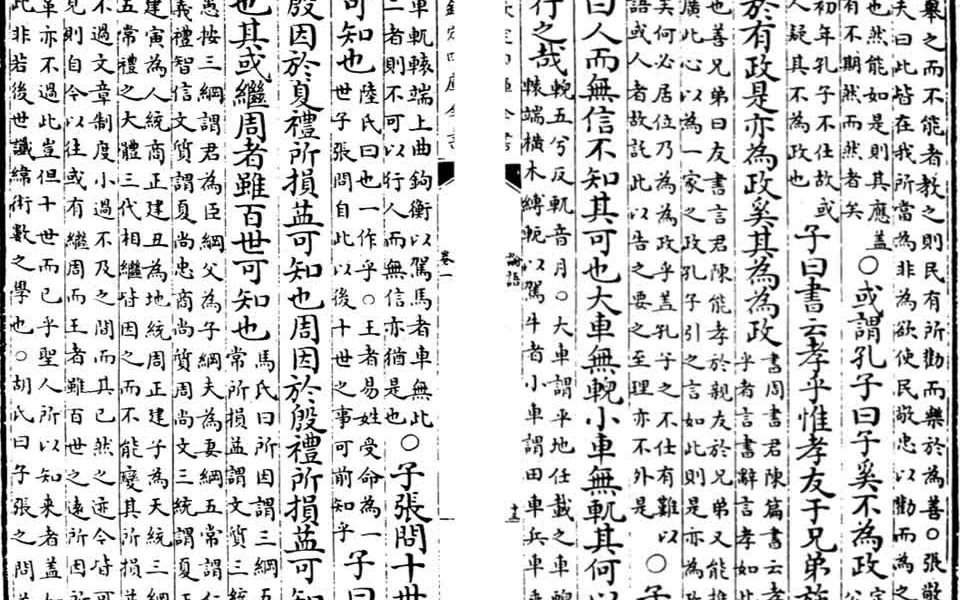 舉之而不能者教之則民有所勸而樂於為善○張敬
夫曰此皆在我所當為非為欲使民敬忠以勸而為之
也然能如是則其應蓋
有不期然而然者矣
○或謂孔子曰子奚不為政
定
初年孔子不仕故或
人疑其不為政也
子曰書云孝乎惟孝友于兄弟施
於有政是亦為政奚其為為政
書周書君陳篇書云孝
乎者言書辭言孝如此
也善兄弟曰友書言君陳能孝於親友於兄弟又能推
廣此心以為一家之政孔子引之言如此則是亦為政
矣何必居位乃為為政乎蓋孔子之不仕有難以
語或人者故託此以告之要之至理亦不外是
○子
曰人而無信不知其可也大車無輗小車無軏其何以
行之哉
輗五兮反軏音月○大車謂平地任載之車輗
轅端橫木縛軛以駕牛者小車謂田車兵車乘
欽定四庫全書
論語
十三
欽定四庫全書
卷一
車軏轅端上曲鉤衡以駕馬者車無此
二者則不可以行人而無信亦猶是也
○子張問十世
可知也
陸氏曰也一作乎○王者易姓受命為一
世子張問自此以後十世之事可前知乎
子曰
殷因於夏禮所損益可知也周因於殷禮所損益可知
也其或繼周者雖百世可知也
馬氏曰所因謂三綱五
常所損益謂文質三統
愚按三綱謂君為臣綱父為子綱夫為妻綱五常謂仁
義禮智信文質謂夏尚忠商尚質周尚文三統謂夏正
建寅為人統商正建丑為地統周正建子為天統三綱
五常禮之大體三代相繼皆因之而不能變其所損益
不過文章制度小過不及之間而其已然之迹今皆可
見則自今以往或有繼周而王者雖百世之遠所因所
革亦不過此豈但十世而已乎聖人所以知來者蓋如
此非若後世讖緯術數之學也○胡氏曰子張之問蓋